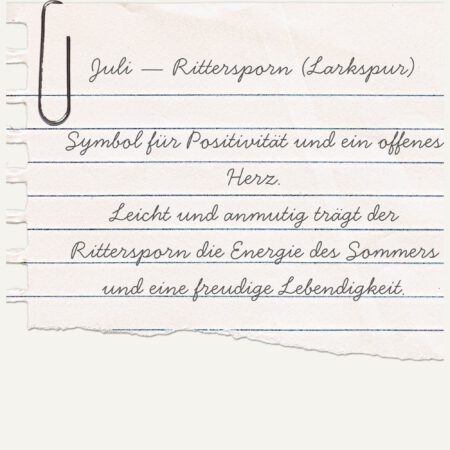 Juli — Rittersporn (Larkspur)
Symbol für Positivität und ein offenes
Herz.
Leicht und anmutig trägt der
Rittersporn die Energie des Sommers
und eine freudige Lebendigkeit.